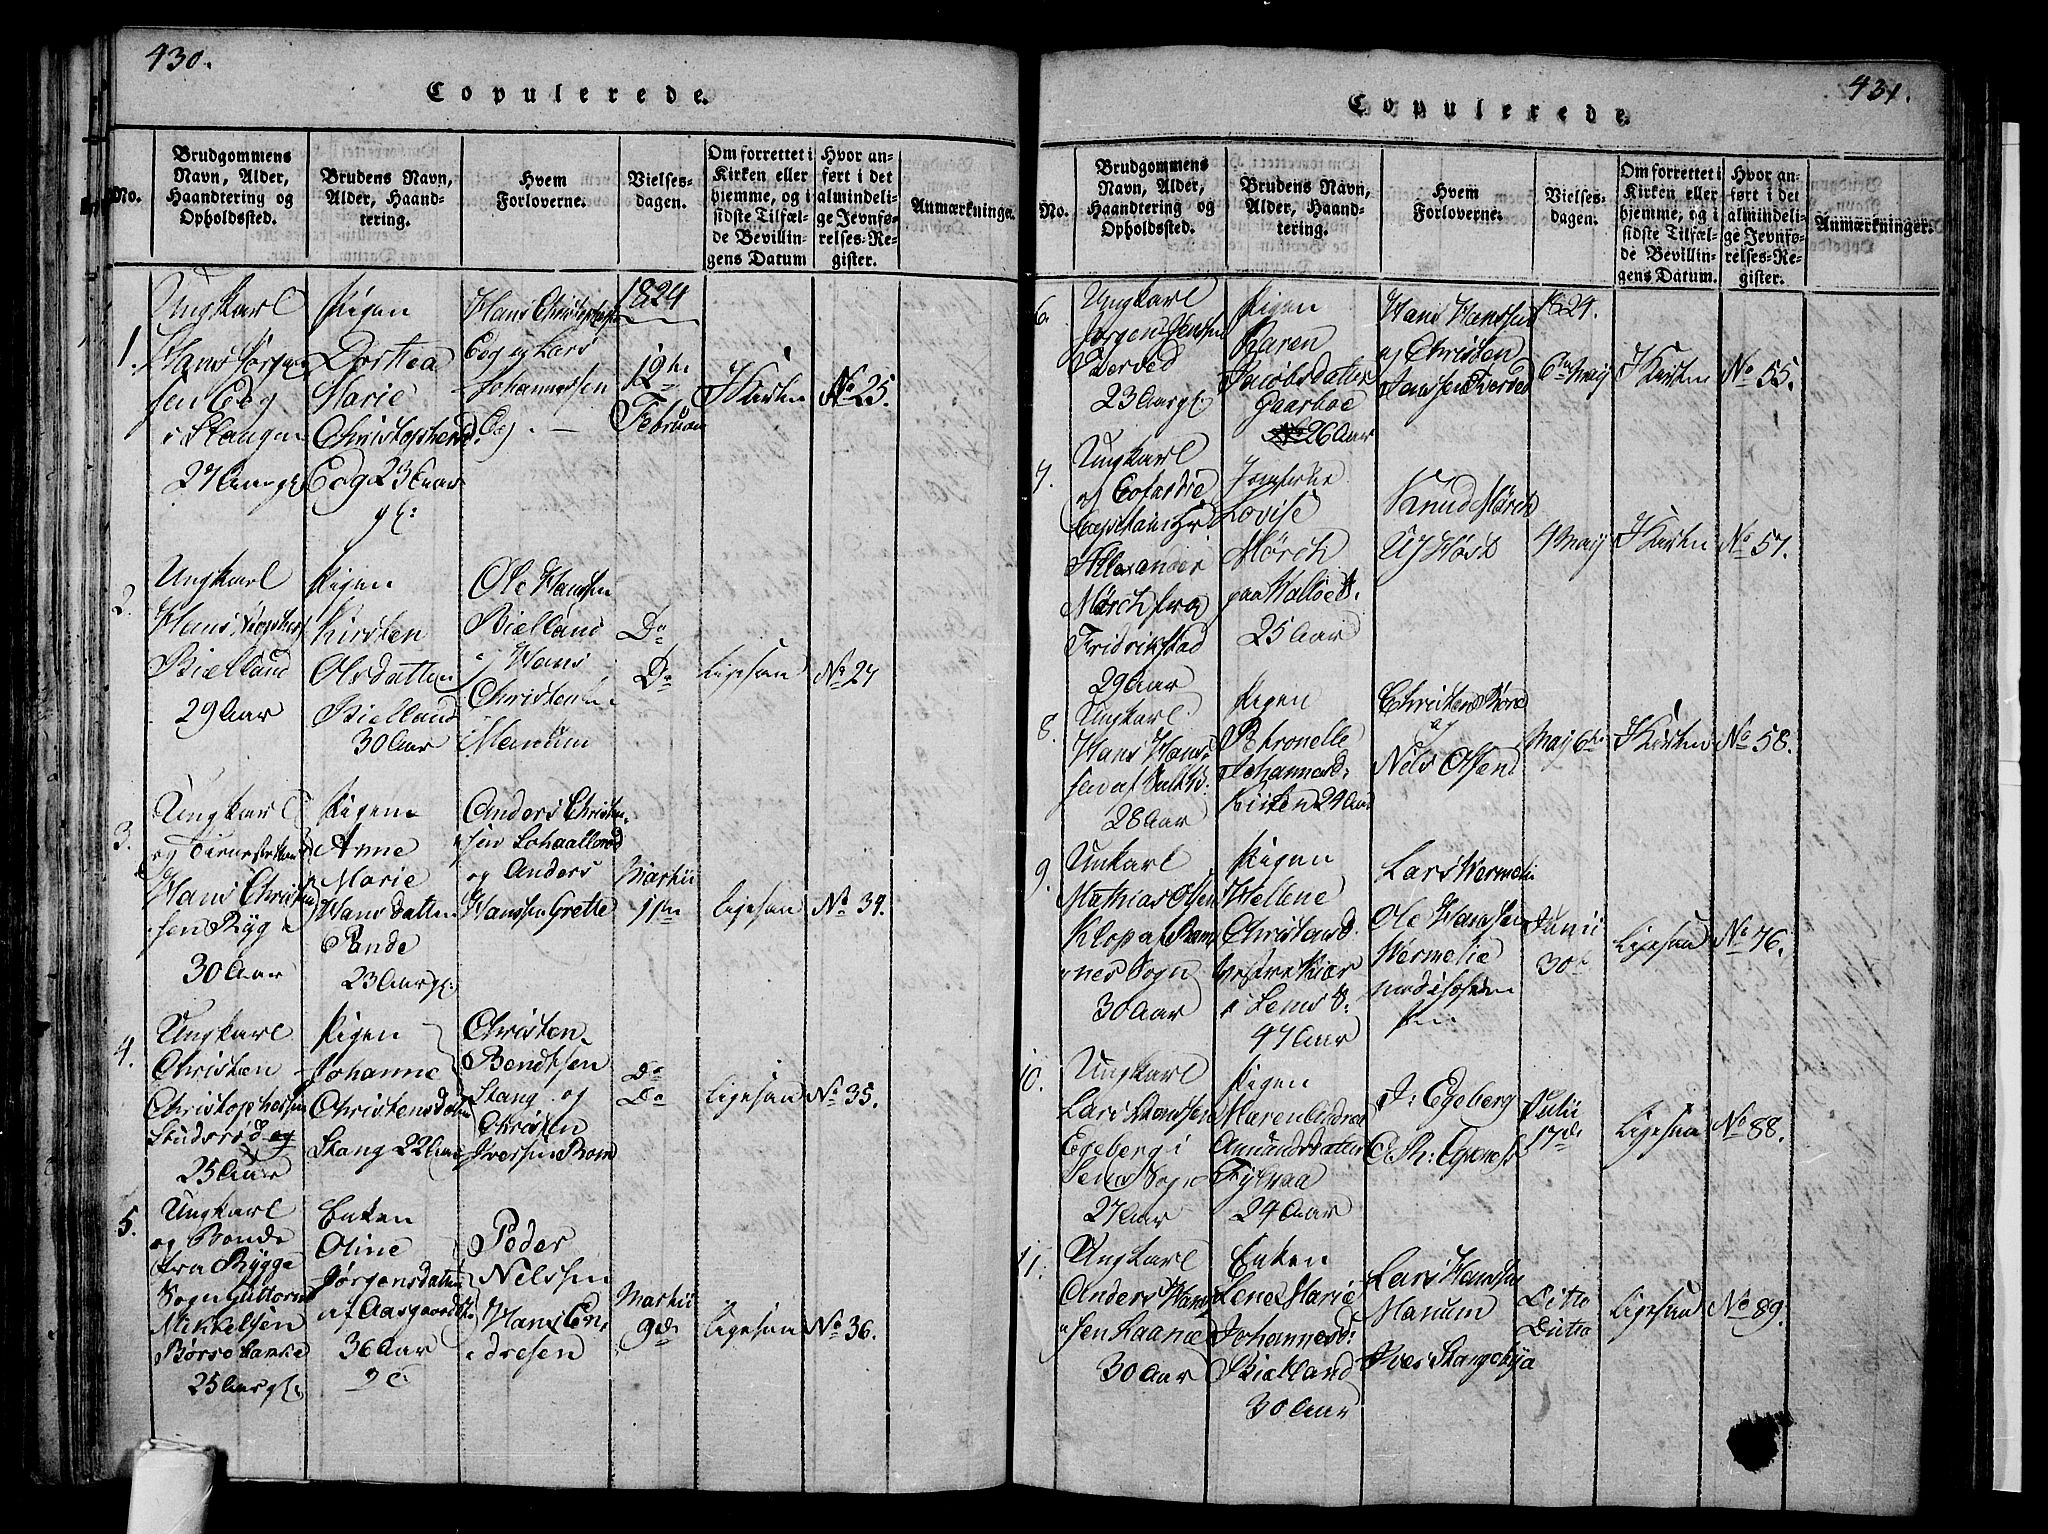 430.
Copulerede.
No.
Brudgommens
Navn, Alder,
Haandtering og
Opholdssted.
Brudens Navn,
Alder, Haand-
tering.
Hvem
Forloverne.
Vielses-
dagen.
Om forrettet i
Kirken eller
hjemme, og i
sidste Tilfæl-
de Bevillin-
gens Datum
Hvor an-
ført i det
almindeli-
ge Jevnfø-
relses-Re-
gister.
Anmærkninger.
1.
Ungkarl
Hans Jørgen
sen Eeg
i Stangen
27 Aar gl
Pigen
Dorthea
Marie
Christophersd.
Eeg 23 Aar
gl:
Hans Christophersen
Eeg og Lars
Johannessen
Eeg
1824
12te
Februar
I Kirken
No 25.
2.
Ungkarl
Hans
Bielland
29 Aar
Pigen
Kirsten
Olsdatter
Bielland
30 Aar
Ole Hanssen
Bielland
Hans
Christensen
Manum
Do
Do
ligesaa
No 27
3.
Ungkarl
og
Hans Christen
sen Rygge
30 Aar
Pigen
Anne
Marie
Hansdatter
Rande
23 Aar gl:
Anders Christen
sen
og Anders
Hanssen Grette
Martii
11te
ligesaa
No 34.
4.
Ungkarl
Christen
Christophersen
Studsrød og
25 Aar
Pigen
Johanne
Christensdatter
Stang 22 Aar
Christen
Bendtsen
Stang og
Christen
Iversen Rom
Do
Do
ligesaa
No 35.
5.
Ungkarl
og Bonde
fra Rygge
Sogn Guttorm
Mikkelsen
Børsebakke
25 Aar gl:
Enken
Oline
Jørgensdatter
af Aasgaard
36 Aar
Peder
Nelssen
Hans En
dresen
Martii
9de
ligesaa
No 36.
431.
Copulerede.
No.
Brudgommens
Navn, Alder,
Haandtering og
Opholdssted.
Brudens Navn,
Alder, Haand-
tering.
Hvem
Forloverne.
Vielses-
dagen.
Om forrettet i
Kirken eller
hjemme, og i
sidste Tilfæl-
de Bevillin-
gens Datum.
Hvor an-
ført i det
almindeli-
ge Jevnfø-
relses-Re-
gister.
Anmærkninger.
6
Ungkarl
Jørgen Jenssen
Tverved
23 Aar gl
Pigen
Karen
Jacobsdatter
Gaarboe
26 Aar
Hans Hanssen
og Christen
Jenssen Tverved
1824.
6te May
I Kirken
No 55.
7.
Ungkarl
Capitain Hr.
Alexander
Mørch fra
Fridrikstad
29 Aar
Jomfrue
Lovise
Mørch
paa Walløe
25 Aar
Knud Mørch
Høst
4 May
I Kirken
No 57.
8.
Ungkarl
Hans Hans
sen af
28 Aar
Pigen
Petronelle
Johannesd.
Kirken 24 Aar
Christen
og
Nels Olsen
Maj 6te
I Kirken
No 58.
9.
Unkarl
Mathias Olsen
Klop af Ram
nes Sogn
30 Aar
Pigen
Hellene
Christensd.
Vestre Kiær
i Sems S.
47 Aar
Lars Vermelie
Ole Hanssen
Vermelie
Junii
30te
ligesaa
No 76.
10.
Ungkarl
Lars Hanssen
Egeberg i
Sems Sogn
27 Aar
Pigen
Maren Andrea
Amundsdatter
29 Aar
J: Egeberg
C. Th:
Julii
17de
ligesaa
No 88.
11.
Ungkarl
Anders Hans
sen Laane
30 Aar
Enken
Lene Marie
Johannesd:
Bielland
30 Aar
Lars Hanssen
Manum
Iver Stangebye
Ditto
Ditto
ligesaa
No 89.